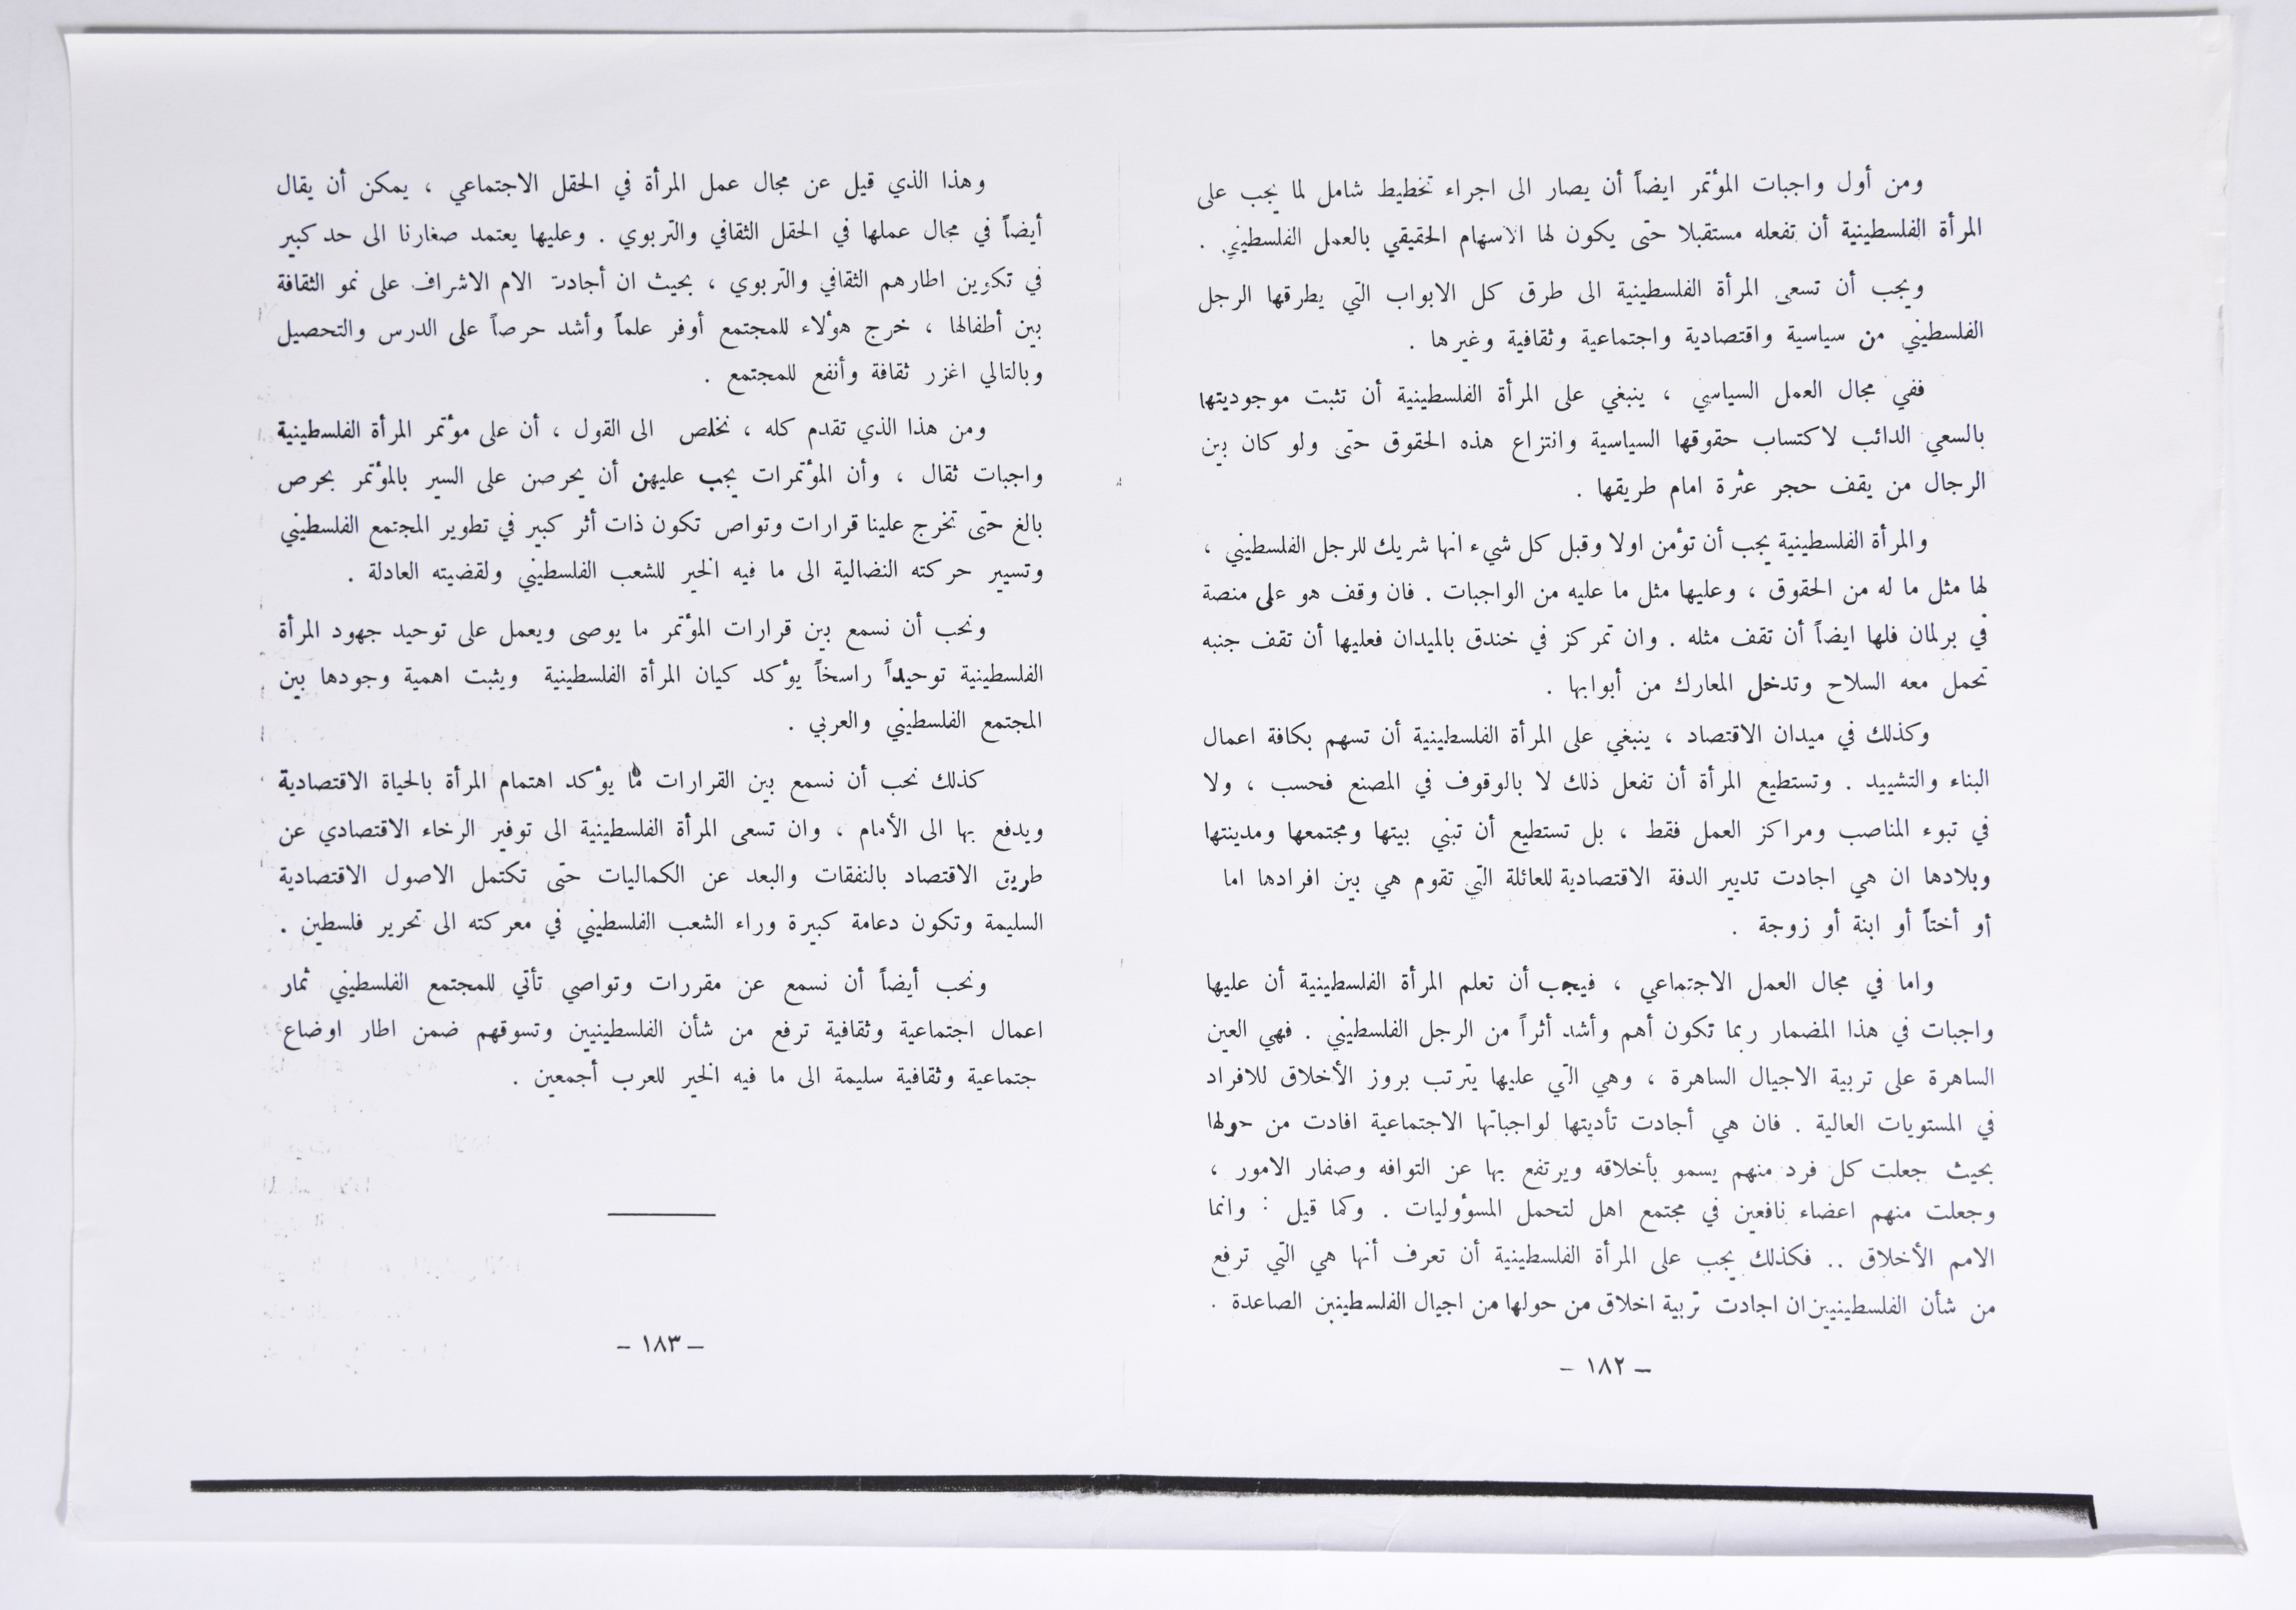 ومن أول واجبات المؤتمر ايضاً أن يصار الى اجراء تخطيط شامل لما يجب على
المرأة الفلسطينية أن تفعله مستقبلا حتى يكون لها الاسهام الحقيقي بالعمل الفلسطيني .
ويجب أن تسعى المرأة الفلسطينية الى طرق كل الابواب التي يطرقها الرجل
الفلسطيني من سياسية واقتصادية واجتماعية وثقافية وغيرها .
ففي مجال العمل السياسي ، ينبغي على المرأة الفلسطينية أن تثبت موجوديتها
بالسعي الدائب لاكتساب حقوقها السياسية وانتزاع هذه الحقوق حتى ولو كان بين
الرجال من يقف حجر عثرة امام طريقها .
والمرأة الفلسطينية يجب أن تؤمن اولا وقبل كل شيء انها شريك للرجل الفلسطيني ،
لها مثل ما له من الحقوق ، وعليها مثل ما عليه من الواجبات . فان وقف هو على منصة
في برلمان فلها ايضاً أن تقف مثله . وان تمركز في خندق بالميدان فعليها أن تقف جنبه
تحمل معه السلاح وتدخل المعارك من أبوابها .
وكذلك في ميدان الاقتصاد ، ينبغي على المرأة الفلسطينية أن تسهم بكافة اعمال
البناء والتشييد . وتستطيع المرأة أن تفعل ذلك لا بالوقوف في المصنع فحسب ، ولا
في تبوء المناصب ومراكز العمل فقط ، بل تستطيع أن تبني بيتها ومجتمعها ومدينتها
وبلادها ان هي اجادت تديير الدفة الاقتصادية للعائلة التي تقوم هي بين افرادها اما
أو أختاً أو ابنة أو زوجة .
واما في مجال العمل الاجتماعي ، فيجب أن تعلم المرأة الفلسطينية أن عليها
واجبات في هذا المضمار ربما تكون أهم وأشد أثراً من الرجل الفلسطيني . فهي العين
الساهرة على تربية الاجيال الساهرة ، وهي التي عليها يترتب بروز الأخلاق للافراد
في المستويات العالية . فان هي أجادت تأديتها لواجباتها الاجتماعية افادت من حولها
بحيث جعلت كل فرد منهم يسمو بأخلاقه ويرتفع بها عن التوافه وصفار الامور ،
وجعلت منهم اعضاء نافعين في مجتمع اهل لتحمل المسؤوليات . وكما قيل : وانما
الامم الأخلاق .. فكذلك يجب على المرأة الفلسطينية أن تعرف أنها هي التي ترفع
من شأن الفلسطينيين ان اجادت تربية اخلاق من حولها من اجيال الفلسطينين الصاعدة .
– ١٨٢ –
وهذا الذي قيل عن مجال عمل المرأة في الحقل الاجتماعي ، يمكن أن يقال
أيضاً في مجال عملها في الحقل الثقافي والتربوي . وعليها يعتمد صغارنا الى حد كبير
في تكوين اطارهم الثقافي والتربوي ، بحيث ان أجادت الام الاشراف على نمو الثقافة
بين أطفالها ، خرج هؤلاء للمجتمع أوفر علماً وأشد حرصاً على الدرس والتحصيل
وبالتالي اغزر ثقافة وأنفع للمجتمع .
ومن هذا الذي تقدم كله ، نخلص الى القول ، أن على مؤتمر المرأة الفلسطينية
واجبات ثقال ، وأن المؤتمرات يجب عليهن أن يحرصن على السير بالمؤتمر بحرص
بالغ حتى تخرج علينا قرارات وتواص تكون ذات أثر كبير في تطوير المجتمع الفلسطيني
وتسيير حركته النضالية الى ما فيه الخير للشعب الفلسطيني ولقضيته العادلة .
ونحب أن نسمع بين قرارات المؤتمر ما يوصى ويعمل على توحيد جهود المرأة
الفلسطينية توحيداً راسخاً يؤكد كيان المرأة الفلسطينية ويثبت اهمية وجودها بين
المجتمع الفلسطيني والعربي .
كذلك نحب أن نسمع بين القرارات ما يؤكد اهتمام المرأة بالحياة الاقتصادية
ويدفع بها الى الأمام ، وان تسعى المرأة الفلسطينية الى توفير الرخاء الاقتصادي عن
طريق الاقتصاد بالنفقات والبعد عن الكماليات حتى تكتمل الاصول الاقتصادية
السليمة وتكون دعامة كبيرة وراء الشعب الفلسطيني في معركته الى تحرير فلسطين .
ونحب أيضاً أن نسمع عن مقررات وتواصي تأتي للمجتمع الفلسطيني ثمار
اعمال اجتماعية وثقافية ترفع من شأن الفلسطينيين وتسوقهم ضمن اطار اوضاع
جتماعية وثقافية سليمة الى ما فيه الخير للعرب أجمعين .
– ١٨٣ –